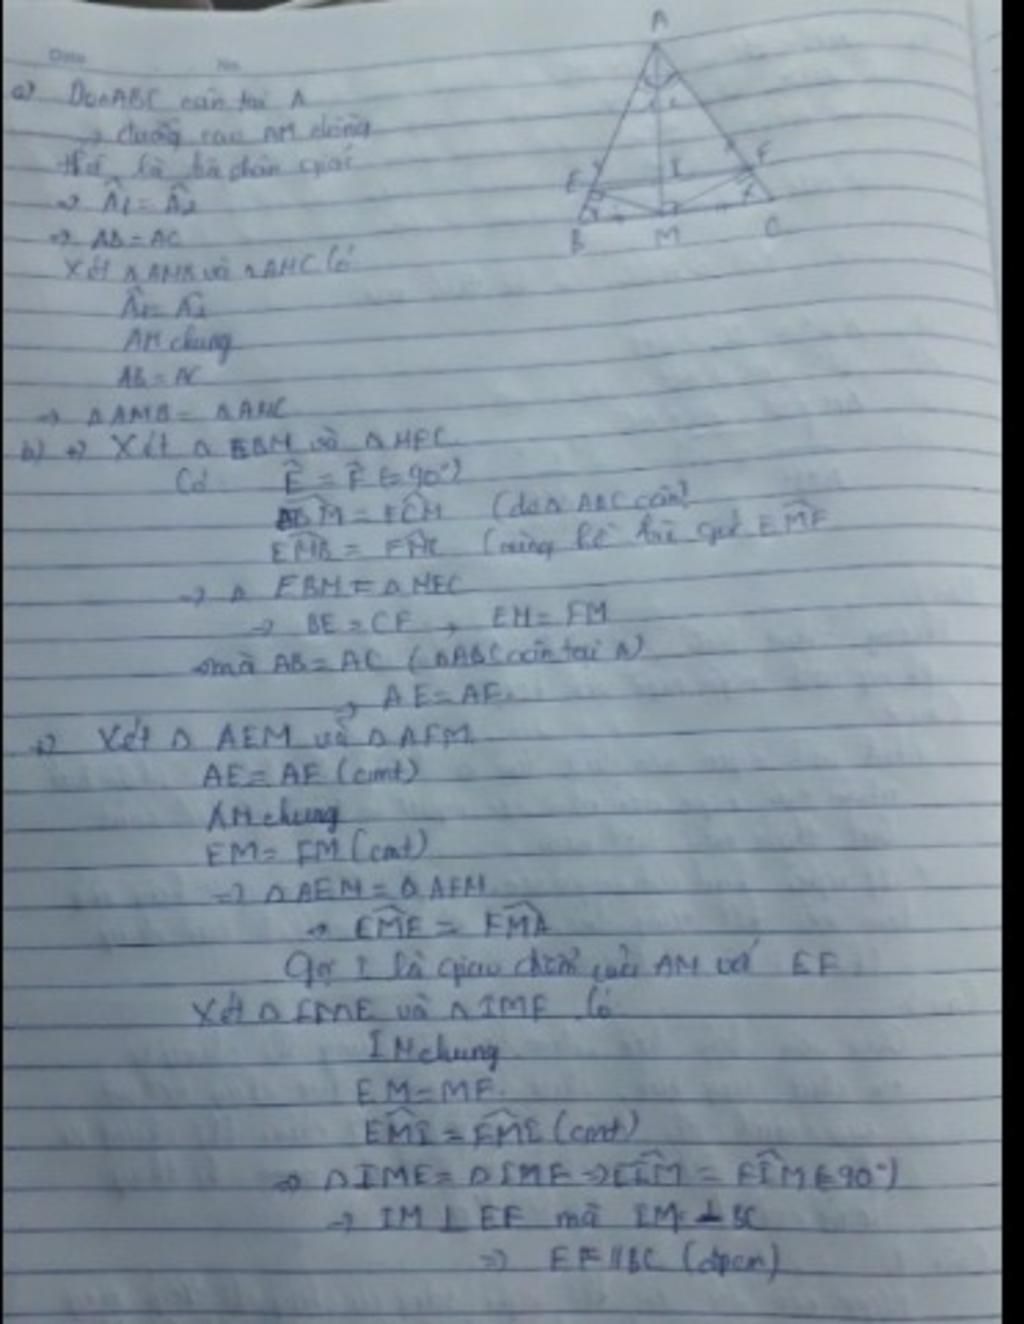 Date No.
A
a) Do △ABC cân tại A
→ đường cao AM đồng
thời là
→ Â₁ = Â₂
→ AB = AC
Xét △AMB và △AMC có
Â₁ = Â₂
AM chung
AB = AC
→ △AMB = △AMC
E I F
B M C
b) +) Xét △ EBM và △ MFC
Có Ê = F̂ (= 90°)
BM = FCM (do △ ABC cân)
EMB = FMC (cùng EMF
→ △ EBM = △ MFC
→ BE = CF, EM = FM
mà AB = AC (△ABC cân tại A)
→ AE = AF.
+) Xét △ AEM và △ AFM
AE = AF (cmt)
AM chung
EM = FM (cmt)
→ △ AEM = △ AFM
→ EME = FMA
Gọi I là giao điểm của AM với EF
Xét △ IME và △ IMF có
IM chung
EM = MF.
EMI = FMI (cmt)
⇒ △ IME = △ IMF → EIM = FIM (= 90°)
→ IM ⊥ EF mà IM ⊥ BC
⇒ EF // BC (đpcm)